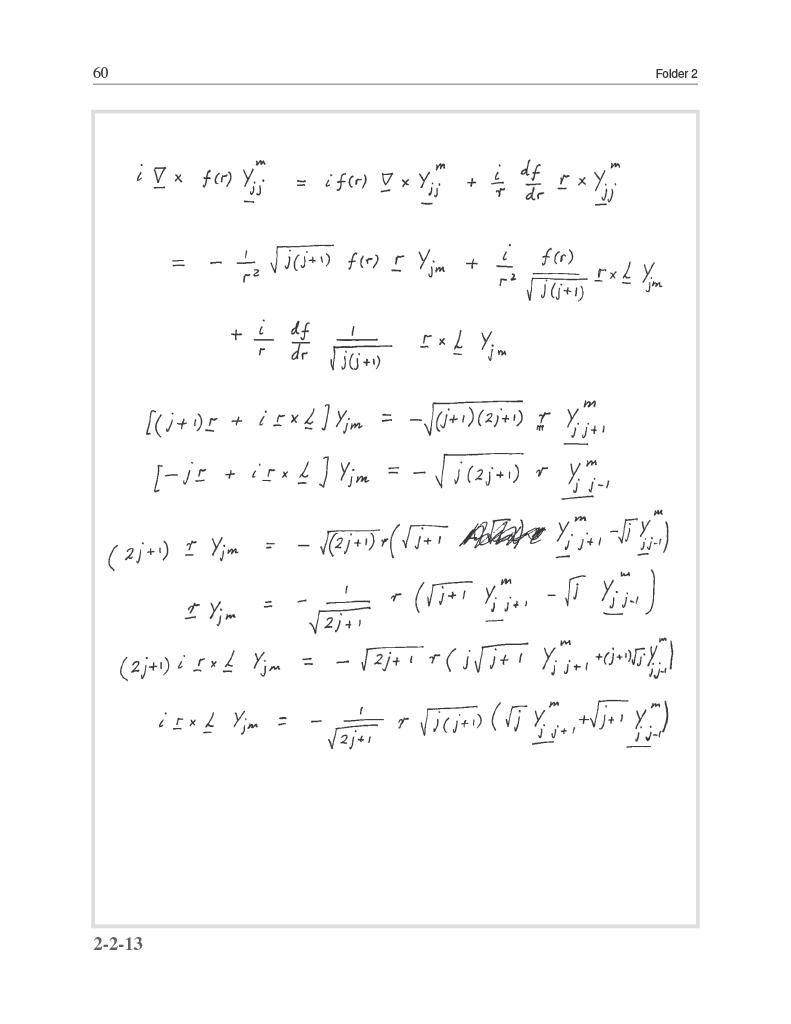 60 Folder 2
i ∇ × f(r) Y_{jj}^m = i f(r) ∇ × Y_{jj}^m + i/r df/dr r × Y_{jj}^m
= − 1/r² √(j(j+1)) f(r) r Y_{jm} + i/r² f(r)/√(j(j+1)) r × L Y_{jm}
+ i/r df/dr 1/√(j(j+1)) r × L Y_{jm}
[(j+1)r + i r × L] Y_{jm} = −√((j+1)(2j+1)) r Y_{j j+1}^m
[−j r + i r × L] Y_{jm} = −√(j(2j+1)) r Y_{j j−1}^m
(2j+1) r Y_{jm} = −√(2j+1) r (√(j+1) Y_{j j+1}^m − √j Y_{j j−1}^m)
r Y_{jm} = − 1/√(2j+1) r (√(j+1) Y_{j j+1}^m − √j Y_{j j−1}^m)
(2j+1) i r × L Y_{jm} = −√(2j+1) r (j√(j+1) Y_{j j+1}^m + (j+1)√j Y_{j j−1}^m)
i r × L Y_{jm} = − 1/√(2j+1) r √(j(j+1)) (√j Y_{j j+1}^m + √(j+1) Y_{j j−1}^m)
2-2-13